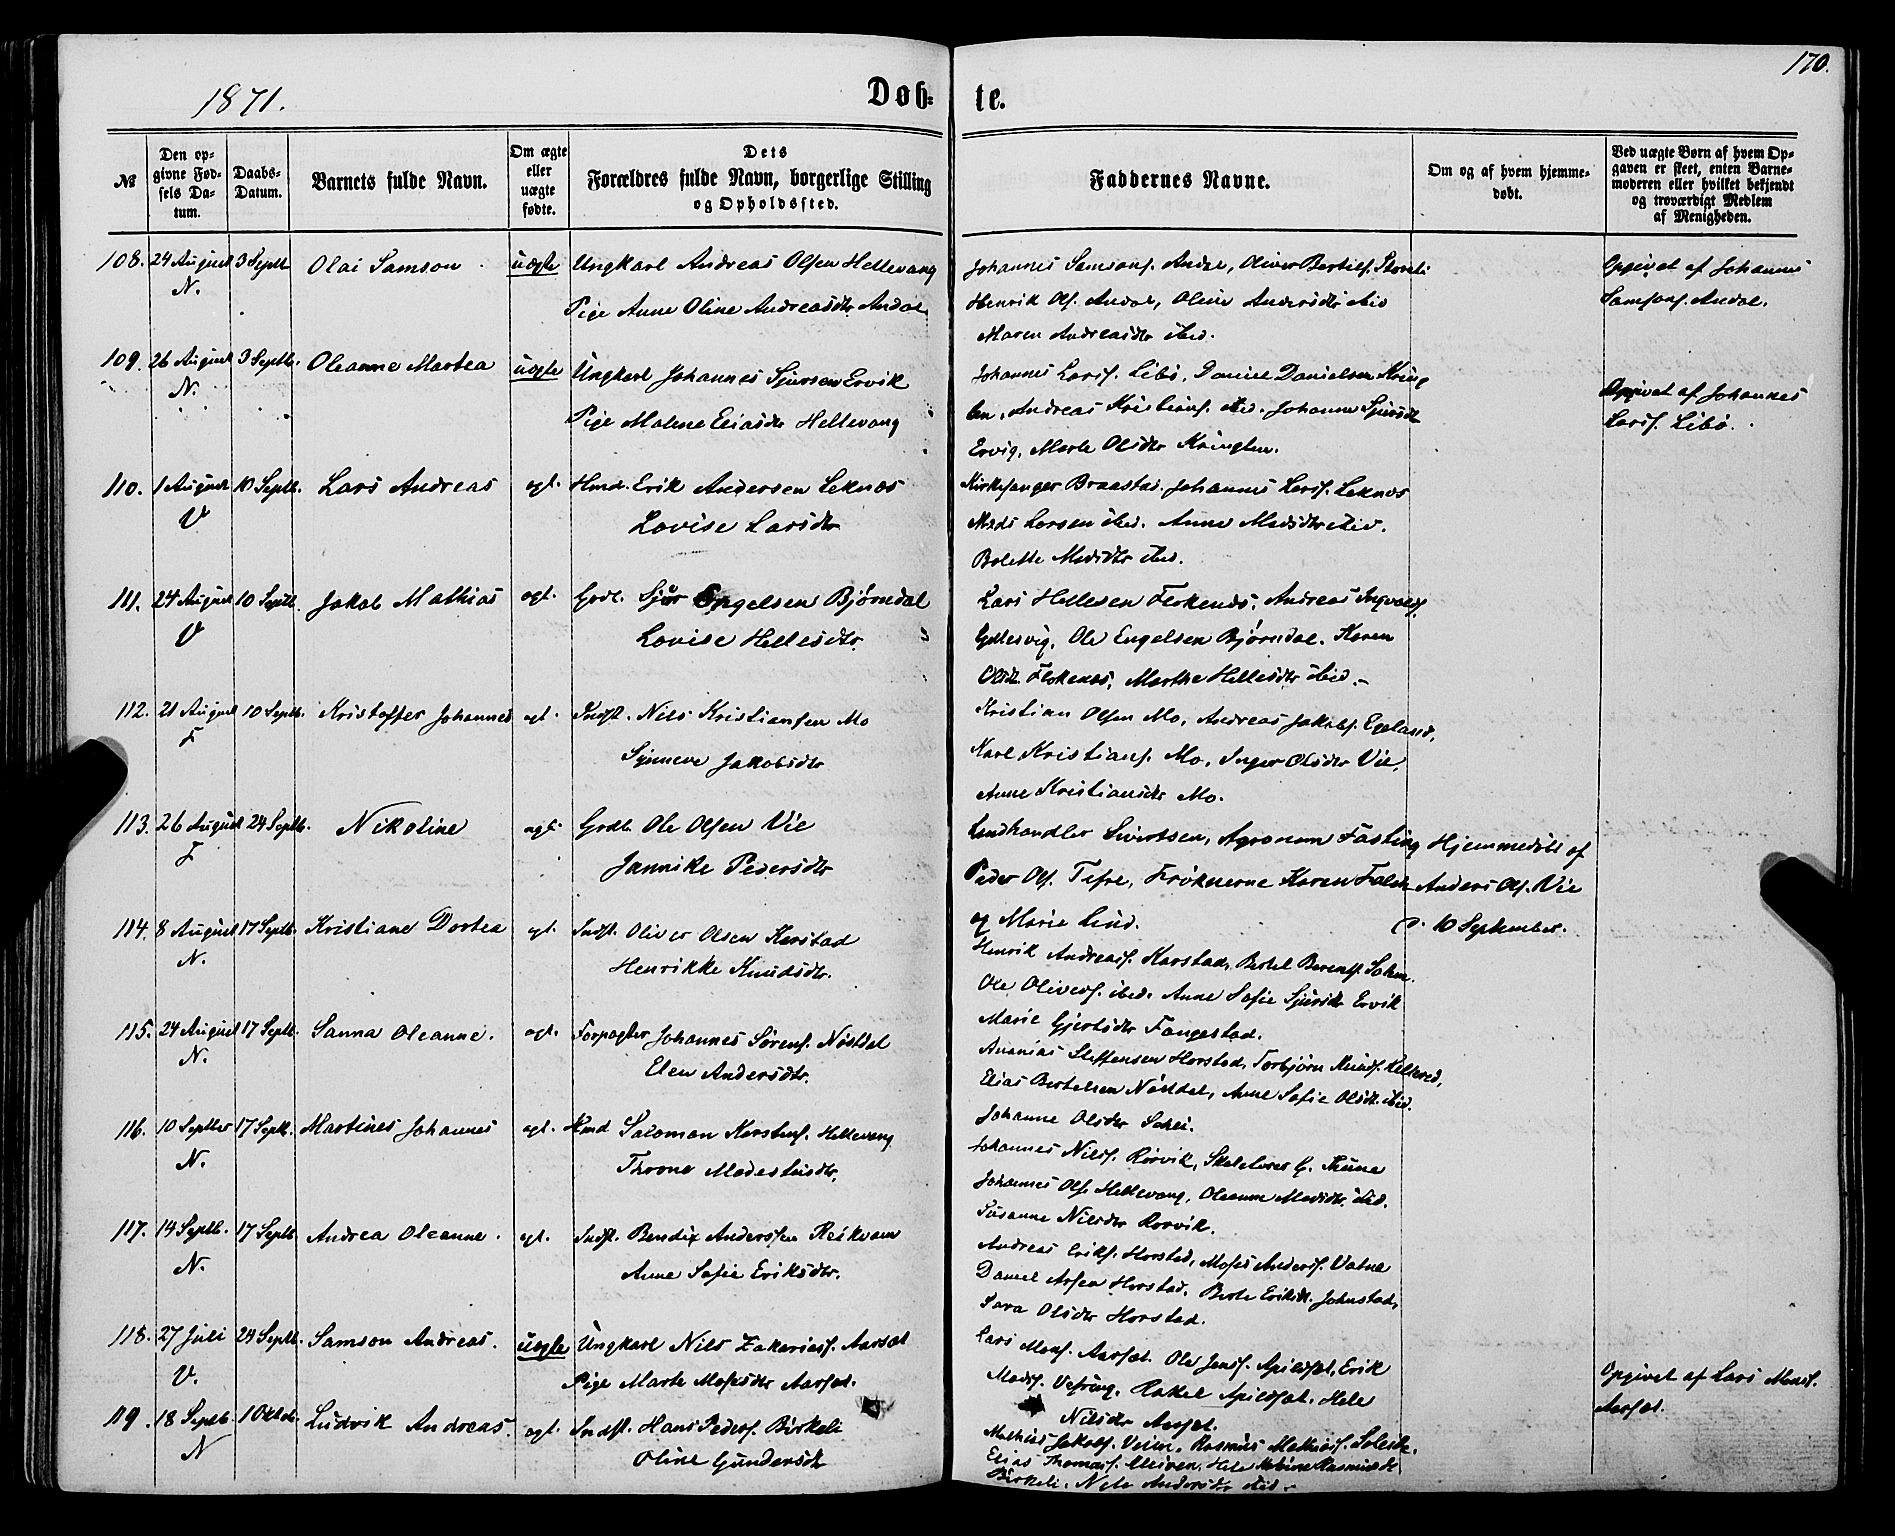 170.
1871.
Døb- te.
№
Den op-
givne Fød-
sels Da-
tum.
Daabs-
Datum.
Barnets fulde Navn.
Om ægte
eller
uægte
fødte.
Dets
Forældres fulde Navn, borgerlige Stilling
og Opholdssted.
Faddernes Navne.
Om og af hvem hjemme-
døbt.
Ved uægte Børn af hvem Op-
gaven er skeet, enten Barne-
moderen eller hvilket bekjendt
og troværdigt Medlem
af Menigheden.
108. 24 August 3 Septb. Olai Samson uægte Ungkarl Andreas Olsen Hellevang
N.
Pige Anne Oline Andreasdtr Andal
Johannes Samsons. Andal, Oliver Bertels.
Henrik Ols. Andal, Oline Andersdtr ibid
Maren Andreasdtr ibid.
Opgivet af Johannes
Samsons. Andal.
109. 26 August 3 Septb. Oleanne Martea uægte Ungkarl Johannes Sjursen Ervik
N.
Pige Malene Eliasdtr Hellevang
Johannes Larss. Libø, Daniel Danielsen Kring
len, Andreas Kristians. ibid. Johanne Sjursdtr
Ervig, Marte Olsdtr Kringlen.
Opgivet af Johannes
Larss. Libø.
110. 1 August 10 Septb. Lars Andreas egt. Hmd. Erik Andersen Leknæs
V
Lovise Larsdtr
Kirkesanger Braastad. Johannes Larss. Leknæs
Mads Larsen ibid. Anne Madsdtr ibid.
Bolette Madsdtr ibid.
111. 24 August 10 Septb. Jakob Mathias egt. Grdb. Sjur Engelsen Bjørndal
V
Lovise Hellesdtr.
Lars Hellesen Flokenæs, Andreas Ingvalds.
Ole Engelsen Bjørndal. Karen
Olsdtr. Flokenæs, Marthe Hellesdtr ibid.
112. 21 August 10 Septb. Kristoffer Johannes egt. Indst. Nils Kristiansen Mo
F
Synneve Jakobsdtr
Kristian Olsen Mo, Andreas Jakobs. Egeland,
Karl Kristians. Mo, Inger Olsdtr Vie,
Anne Kristiansdtr Mo.
113. 26 August 24 Septb. Nikoline egt. Grdb. Ole Olsen Vie
F
Jannike Pedersdtr
Landhandler Sivertsen, Agronom Fasting
Peder Ols. Tefre, Frøknerne Karen Falch
og Marie Lind.
Hjemmedøbt af
Anders Ols. Vie
d. 10 September.
114. 8 August 17 Septb. Kristiane Dortea egt. Indst. Oliver Olsen Karstad
N.
Henrikke Knudsdtr.
Henrik Andreass. Karstad, Bertel Berents.
Ole Olivers. ibid. Anne Sofie Sjursdtr Ervik
Marie Gjertsdtr Fangestad.
115. 24 August 17 Septb. Sanna Oleanne. egt. Forpagter Johannes Sørens. Nøstdal
N.
Elen Andersdtr.
Ananias Steffensen Horstad, Torbjørn Knuds.
Elias Bertelsen Nøstdal, Anne Sofie Olsdtr ibid.
Johanne Olsdtr Solei.
116. 10 Septber 17 Septb. Martines Johannes egt. Hmd Salomon Karstens. Hellevang
N.
Throne Modestusdtr.
Johannes Nilss. Rørvik, Skolelærer G. Thune
Johannes Ols. Hellevang, Oleanne Madsdtr. ibid.
Susanne Nilsdtr Rørvik.
117. 14 Septb. 17 Septb. Andrea Oleanne. egt. Indst. Bendix Anderssen Reikvam
N.
Anne Sofie Eriksdtr.
Andreas Eriks. Horstad, Moses Anders. Vatne
Daniel Arsen Horstad. Berte Eriksdtr. Johnstad,
Sara Olsdtr Horstad.
118. 27 Juli 24 Septb. Samson Andreas. uægte Ungkarl Nils Zakariass. Aarsæt
V.
Pige Marte Mosesdtr Aarsæt.
Lars Mons. Aarsæt. Ole Jens. Apilsæt, Erik
Mads. Vefring, Rakel Apilsæt. Hele
Nilsdtr Aarsæt.
Opgivet af Lars Mons.
Aarsæt.
119. 18 Septb. 1 Oktob. Ludvik Andreas. egt. Indst. Hans Peders. Birkeli
N
Oline Gundersdtr
Mathias Jakobs. Veien, Rasmus Mathias.
Elias Thomas.
Birkeli. Andersdtr ibid